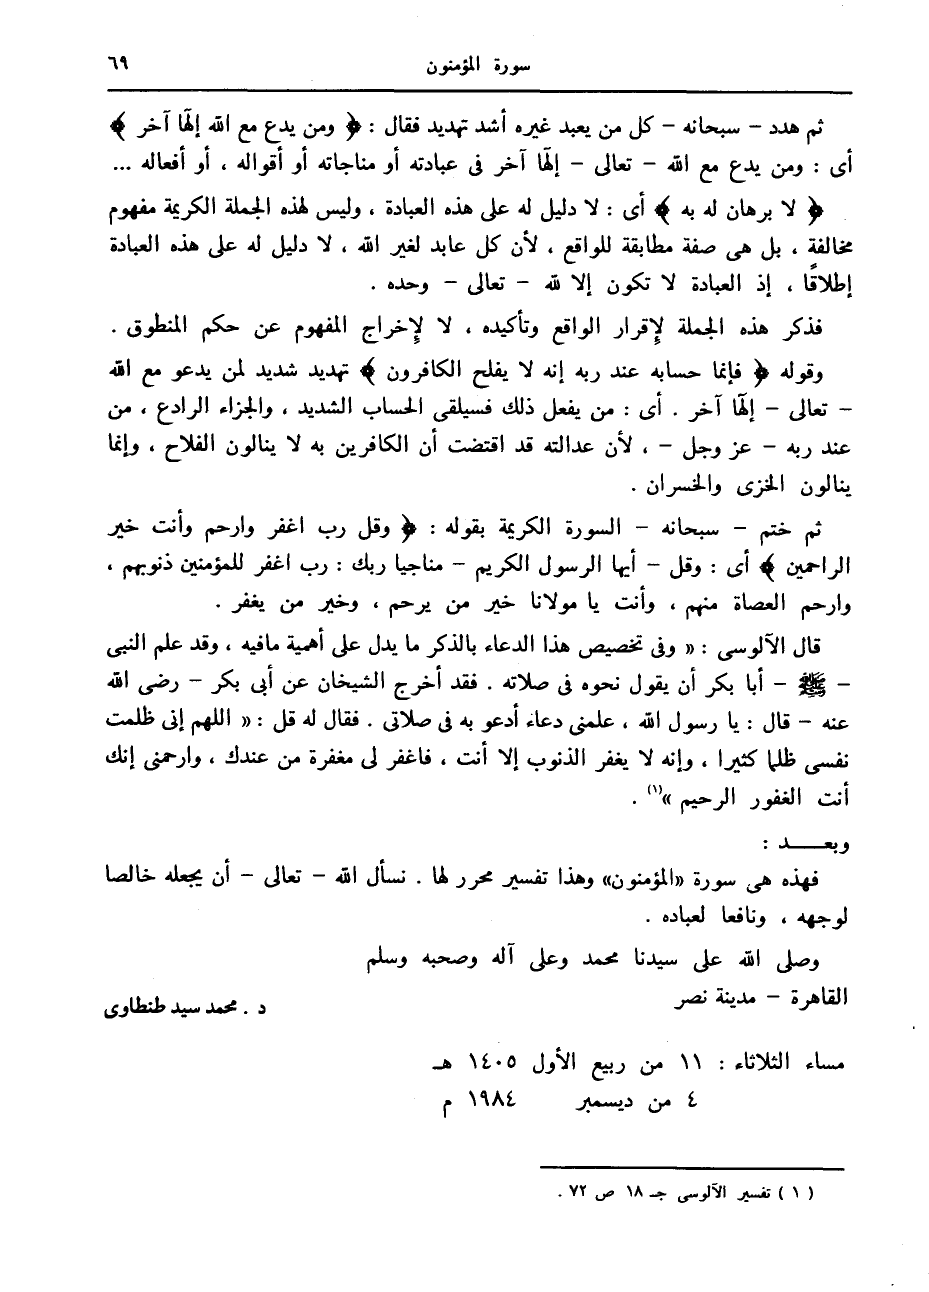 سورة المؤمنون ٦٩
ثم هدد – سبحانه – كل من يعبد غيره أشد تهديد فقال : ﴿ ومن يدع مع الله إلٰهًا آخر ﴾
أى : ومن يدع مع الله – تعالى – إلٰهًا آخر فى عبادته أو مناجاته أو أقواله ، أو أفعاله ...
﴿ لا برهان له به ﴾ أى : لا دليل له على هذه العبادة ، وليس لهذه الجملة الكريمة مفهوم
مخالفة ، بل هى صفة مطابقة للواقع ، لأن كل عابد لغير الله ، لا دليل له على هذه العبادة
إطلاقًا ، إذ العبادة لا تكون إلا لله – تعالى – وحده .
فذكر هذه الجملة لإقرار الواقع وتأكيده ، لا لإخراج المفهوم عن حكم المنطوق .
وقوله ﴿ فإنما حسابه عند ربه إنه لا يفلح الكافرون ﴾ تهديد شديد لمن يدعو مع الله
– تعالى – إلٰهًا آخر . أى : من يفعل ذلك فسيلقى الحساب الشديد ، والجزاء الرادع ، من
عند ربه – عز وجل – ، لأن عدالته قد اقتضت أن الكافرين به لا ينالون الفلاح ، وإنما
ينالون الخزى والخسران .
ثم ختم – سبحانه – السورة الكريمة بقوله : ﴿ وقل رب اغفر وارحم وأنت خير
الراحمين ﴾ أى : وقل – أيها الرسول الكريم – مناجيا ربك : رب اغفر للمؤمنين ذنوبهم ،
وارحم العصاة منهم ، وأنت يا مولانا خير من يرحم ، وخير من يغفر .
قال الآلوسى : « وفى تخصيص هذا الدعاء بالذكر ما يدل على أهمية مافيه ، وقد علم النبى
– ﷺ – أبا بكر أن يقول نحوه فى صلاته . فقد أخرج الشيخان عن أبى بكر – رضى الله
عنه – قال : يا رسول الله ، علمنى دعاء أدعو به فى صلاتى . فقال له قل : « اللهم إنى ظلمت
نفسى ظلما كثيرا ، وإنه لا يغفر الذنوب إلا أنت ، فاغفر لى مغفرة من عندك ، وارحمنى إنك
أنت الغفور الرحيم »(١) .
وبعـــــد :
فهذه هى سورة «المؤمنون» وهذا تفسير محرر لها . نسأل الله – تعالى – أن يجعله خالصا
لوجهه ، ونافعا لعباده .
وصلى الله على سيدنا محمد وعلى آله وصحبه وسلم
القاهرة – مدينة نصر
د . محمد سيد طنطاوى
مساء الثلاثاء : ١١ من ربيع الأول ١٤٠٥ هـ
٤ من ديسمبر ١٩٨٤ م
( ١ ) تفسير الآلوسى جـ ١٨ ص ٧٢ .